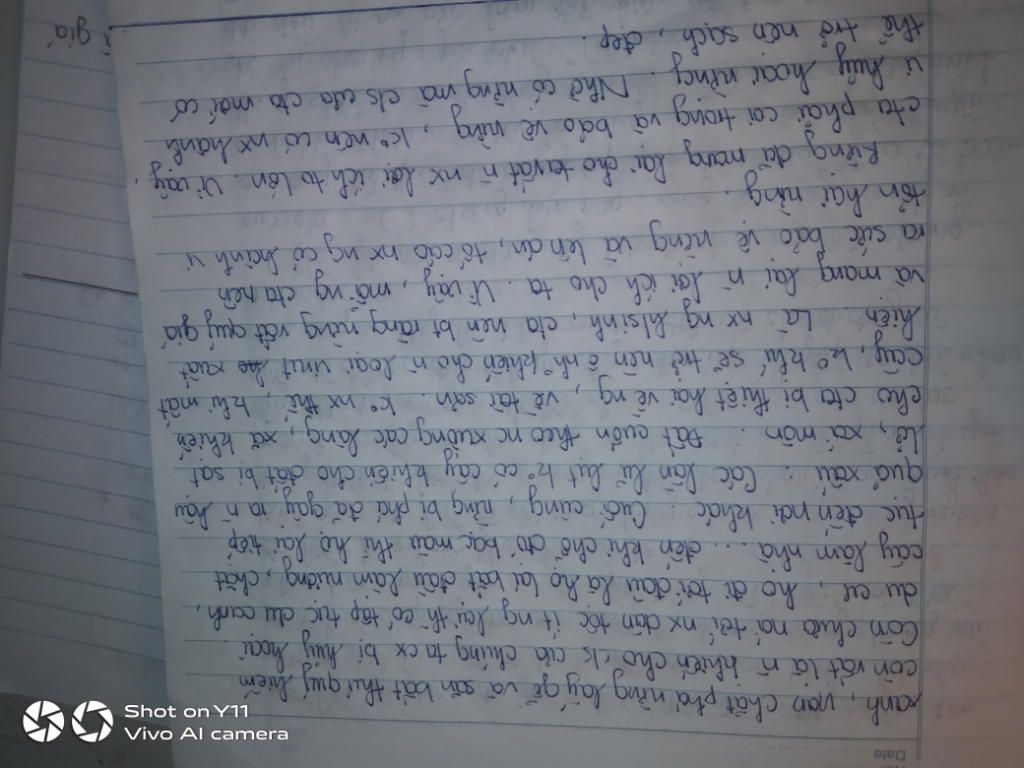 Date
xanh, nạn chặt phá rừng lấy gỗ và săn bắt thú quý hiếm
còn vất là n` khiến cho c/s của chúng ta cx bị huỷ hoại.
Còn chưa nói tới nx dân tộc ít ng lại th` có tập tục du canh,
du cư, họ đi tới đâu là họ lại bắt đầu làm nương, chặt
cây làm nhà... đến khi chỗ đó bạc màu thì họ lại tiếp
tục đến nơi khác. Cuối cùng, rừng bị phá đã gây ra n` hậu
quả xấu: Các lần lũ lụt k° có cây khiến cho đất bị sạt
lở, xói mòn. Đất cuốn theo nc xuống các làng, xã khiến
cho cta bị thiệt hại về ng, về tài sản. k° nx thế, khi mất
cây, k° khí sẽ trở nên ô nh° khiến cho n` loại virut xuất
hiện. Là nx ng h/sinh, cta nên bt rằng rừng vất quý giá
và mang lại n` lợi ích cho ta. Vì vậy, mỗi ng cta nên
ra sức bảo vệ rừng và lên án, tố cáo nx ng có hành vi
tổn hại rừng.
Rừng đã mang lại cho ta rất n` nx lợi ích to lớn. Vì vậy,
cta phải coi trọng và bảo vệ rừng, k° nên có nx hành
vi hủy hoại rừng. Nhờ có rừng mà c/s của cta mới có
thể trở nên sạch, đẹp.
giá
Shot on Y11
Vivo AI camera